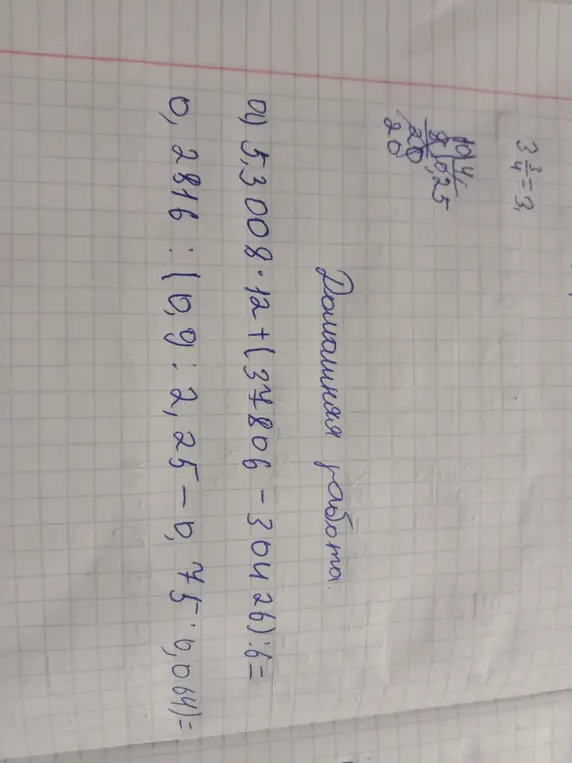 3 3/4 = 3,
10 | 4
8 | 0,25
20
20
Домашняя работа.
а) 5,3008·12+(37806-30426):6=
0,2816:(0,9:2,25-0,75·0,064)=